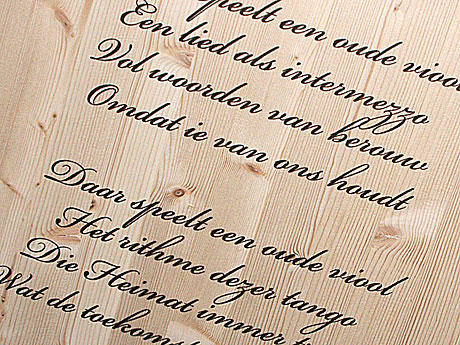 speelt een oude viool
Een lied als intermezzo
Vol woorden van berouw
Omdat ie van ons houdt
Daar speelt een oude viool
Het rithme dezer tango
Die Heimat immer
Wat de